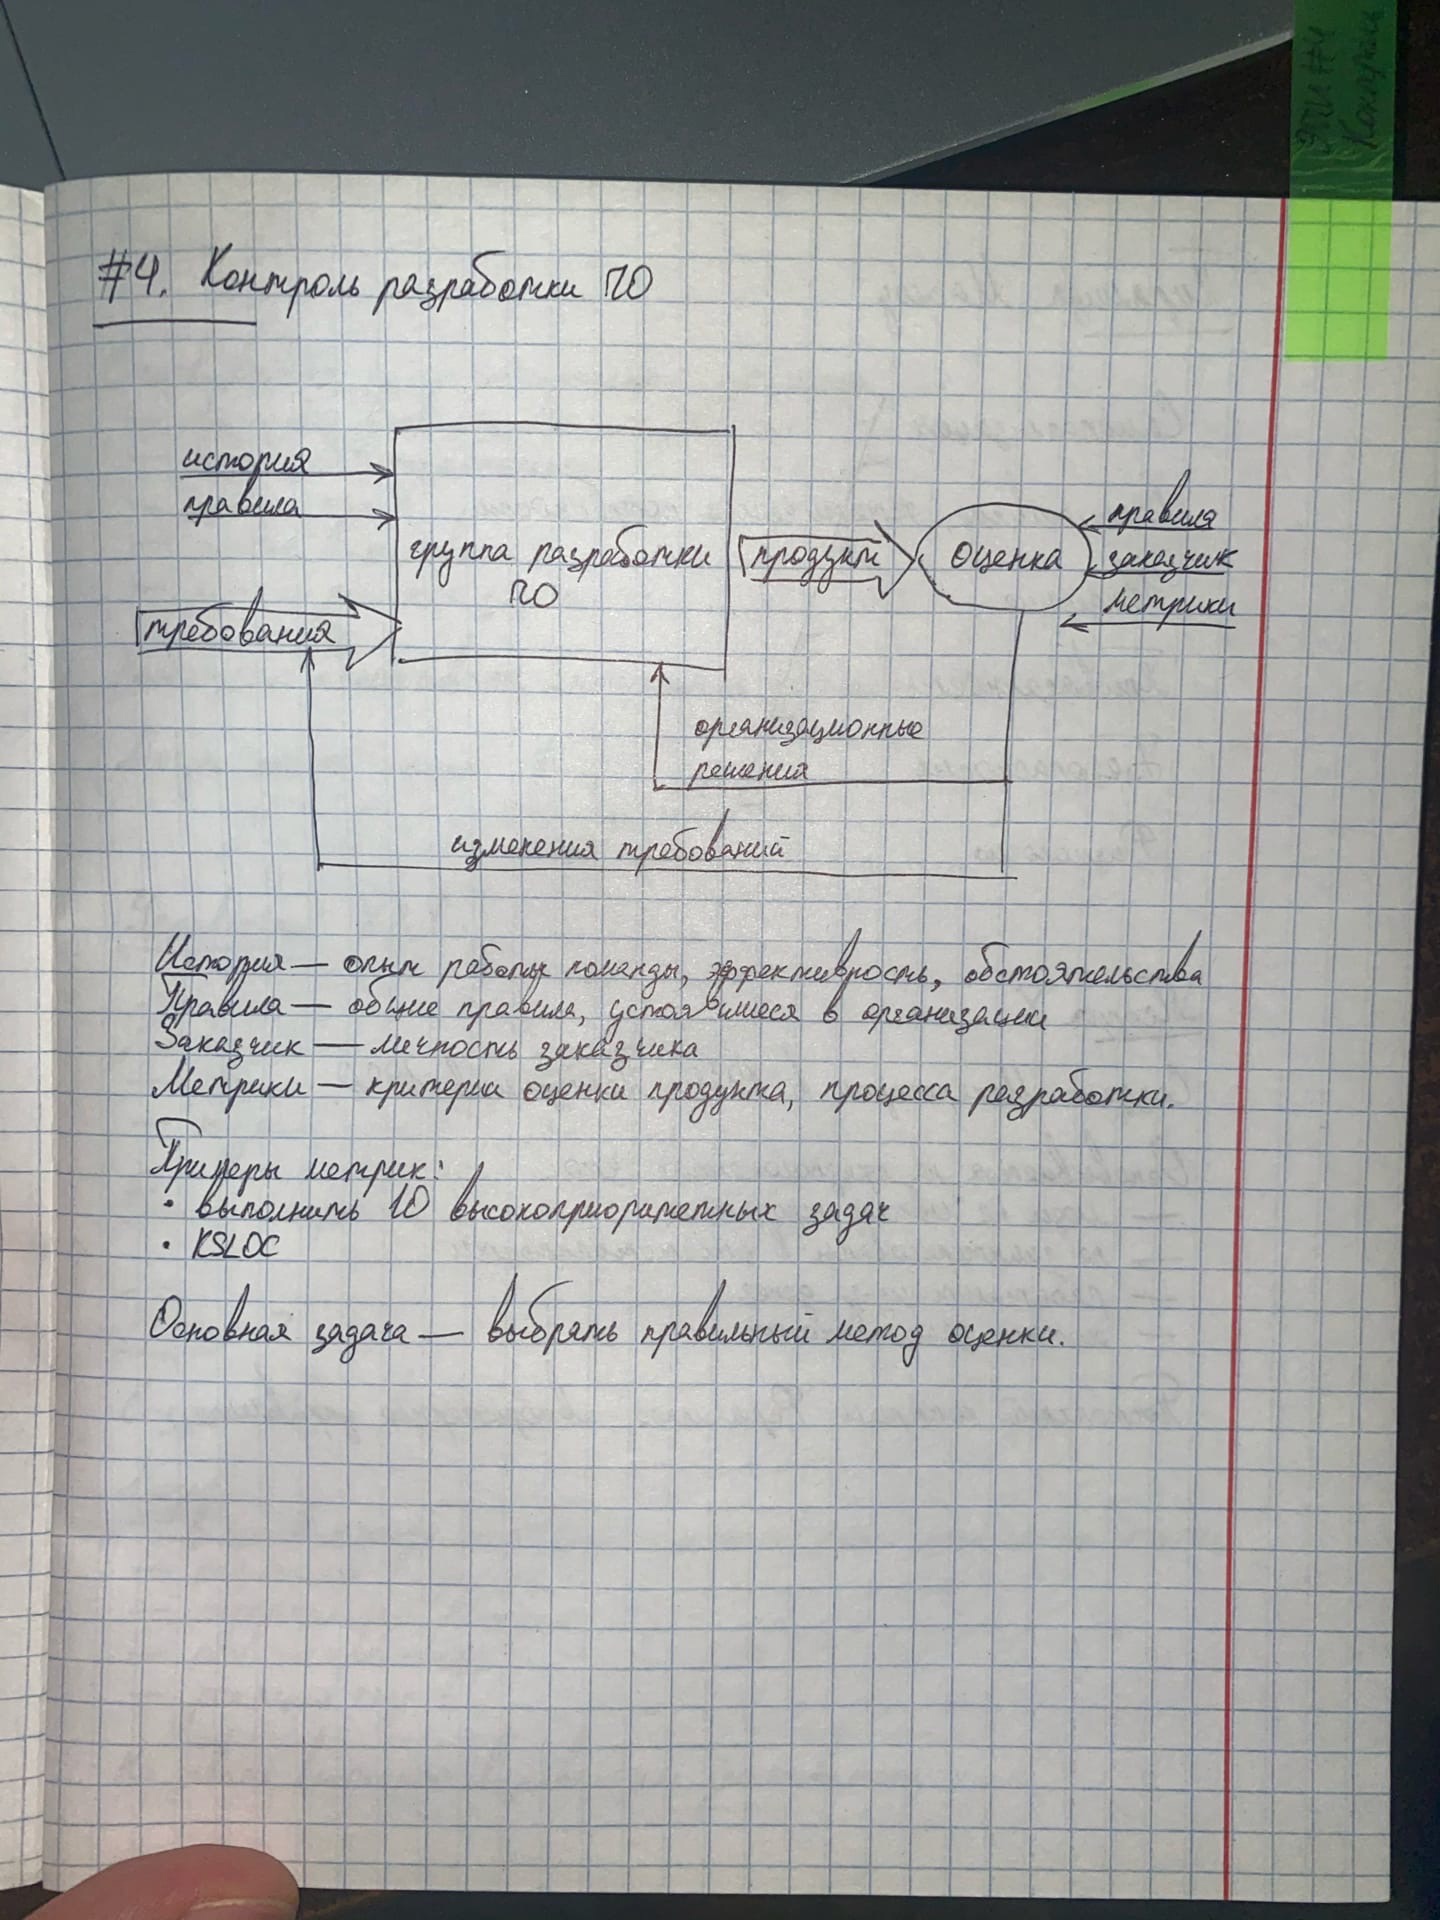 #4. Контроль разработки ПО
история
правила
требования
группа разработки
ПО
продукт
оценка
правила
заказчик
метрики
организационные
решения
изменения требований
История — опыт работы команды, эффективность, обстоятельства
Правила — общие правила, устоявшиеся в организации
Заказчик — личность заказчика
Метрики — критерии оценки продукта, процесса разработки.
Примеры метрик:
• выполнить 10 высокоприоритетных задач
• KSLOC
Основная задача — выбрать правильный метод оценки.
#4
Контроль